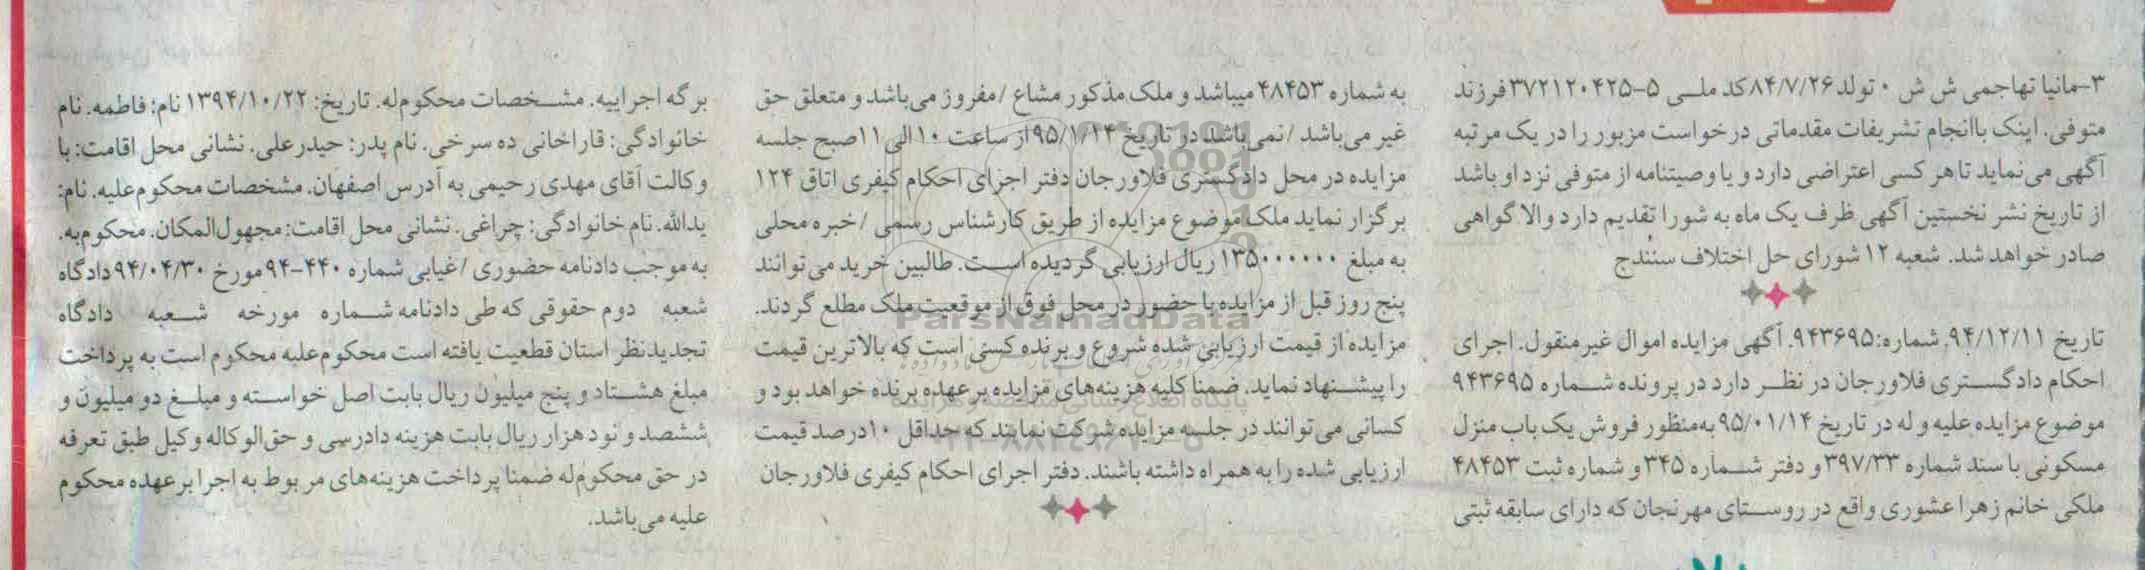 ۳-مانیا تهاجمی ش ش ۰ تولد ۸۴/۷/۲۶ کد ملـی ۵-۳۷۲۱۲۰۴۲۵ فرزند
متوفی. اینک باانجام تشریفات مقدماتی درخواست مزبور را در یک مرتبه
آگهی می‌نماید تاهر کسی اعتراضی دارد و یا وصیتنامه از متوفی نزد او باشد
از تاریخ نشر نخستین آگهی ظرف یک ماه به شورا تقدیم دارد والا گواهی
صادر خواهد شد. شعبه ۱۲ شورای حل اختلاف سنندج
تاریخ ۹۴/۱۲/۱۱. شماره: ۹۴۳۶۹۵. آگهی مزایده اموال غیرمنقول. اجرای
احکام دادگستری فلاورجان در نظر دارد در پرونده شماره ۹۴۳۶۹۵
موضوع مزایده علیه و له در تاریخ ۹۵/۰۱/۱۴ به‌منظور فروش یک باب منزل
مسکونی با سند شماره ۳۹۷/۳۳ و دفتر شماره ۳۴۵ و شماره ثبت ۴۸۴۵۳
ملکی خانم زهرا عشوری واقع در روستای مهرنجان که دارای سابقه ثبتی
به شماره ۴۸۴۵۳ میباشد و ملک مذکور مشاع / مفروز می‌باشد و متعلق حق
غیر می‌باشد / نمی‌باشد در تاریخ ۹۵/۱/۱۴ از ساعت ۱۰ الی ۱۱ صبح جلسه
مزایده در محل دادگستری فلاورجان دفتر اجرای احکام کیفری اتاق ۱۲۴
برگزار نماید ملک موضوع مزایده از طریق کارشناس رسمی / خبره محلی
به مبلغ ۱۳۵۰۰۰۰۰۰ ریال ارزیابی گردیده است. طالبین خرید می‌توانند
پنج روز قبل از مزایده با حضور در محل فوق از موقعیت ملک مطلع گردند.
مزایده از قیمت ارزیابی شده شروع و برنده کسی است که بالاترین قیمت
را پیشنهاد نماید. ضمنا کلیه هزینه‌های مزایده برعهده برنده خواهد بود و
کسانی می‌توانند در جلسه مزایده شرکت نمایند که حداقل ۱۰ درصد قیمت
ارزیابی شده را به همراه داشته باشند. دفتر اجرای احکام کیفری فلاورجان
برگه اجراییه. مشخصات محکوم‌له. تاریخ: ۱۳۹۴/۱۰/۲۲ نام: فاطمه. نام
خانوادگی: قاراخانی ده سرخی. نام پدر: حیدرعلی. نشانی محل اقامت: با
وکالت آقای مهدی رحیمی به آدرس اصفهان. مشخصات محکوم‌علیه. نام:
یدالله. نام خانوادگی: چراغی. نشانی محل اقامت: مجهول‌المکان. محکوم‌به.
به موجب دادنامه حضوری / غیابی شماره ۴۴۰-۹۴ مورخ ۹۴/۰۴/۳۰ دادگاه
شعبه دوم حقوقی که طی دادنامه شماره مورخه شعبه دادگاه
تجدیدنظر استان قطعیت یافته است محکوم‌علیه محکوم است به پرداخت
مبلغ هشتاد و پنج میلیون ریال بابت اصل خواسته و مبلغ دو میلیون و
ششصد و نود هزار ریال بابت هزینه دادرسی و حق‌الوکاله وکیل طبق تعرفه
در حق محکوم‌له ضمنا پرداخت هزینه‌های مربوط به اجرا برعهده محکوم
علیه می‌باشد.
ParsNamadData